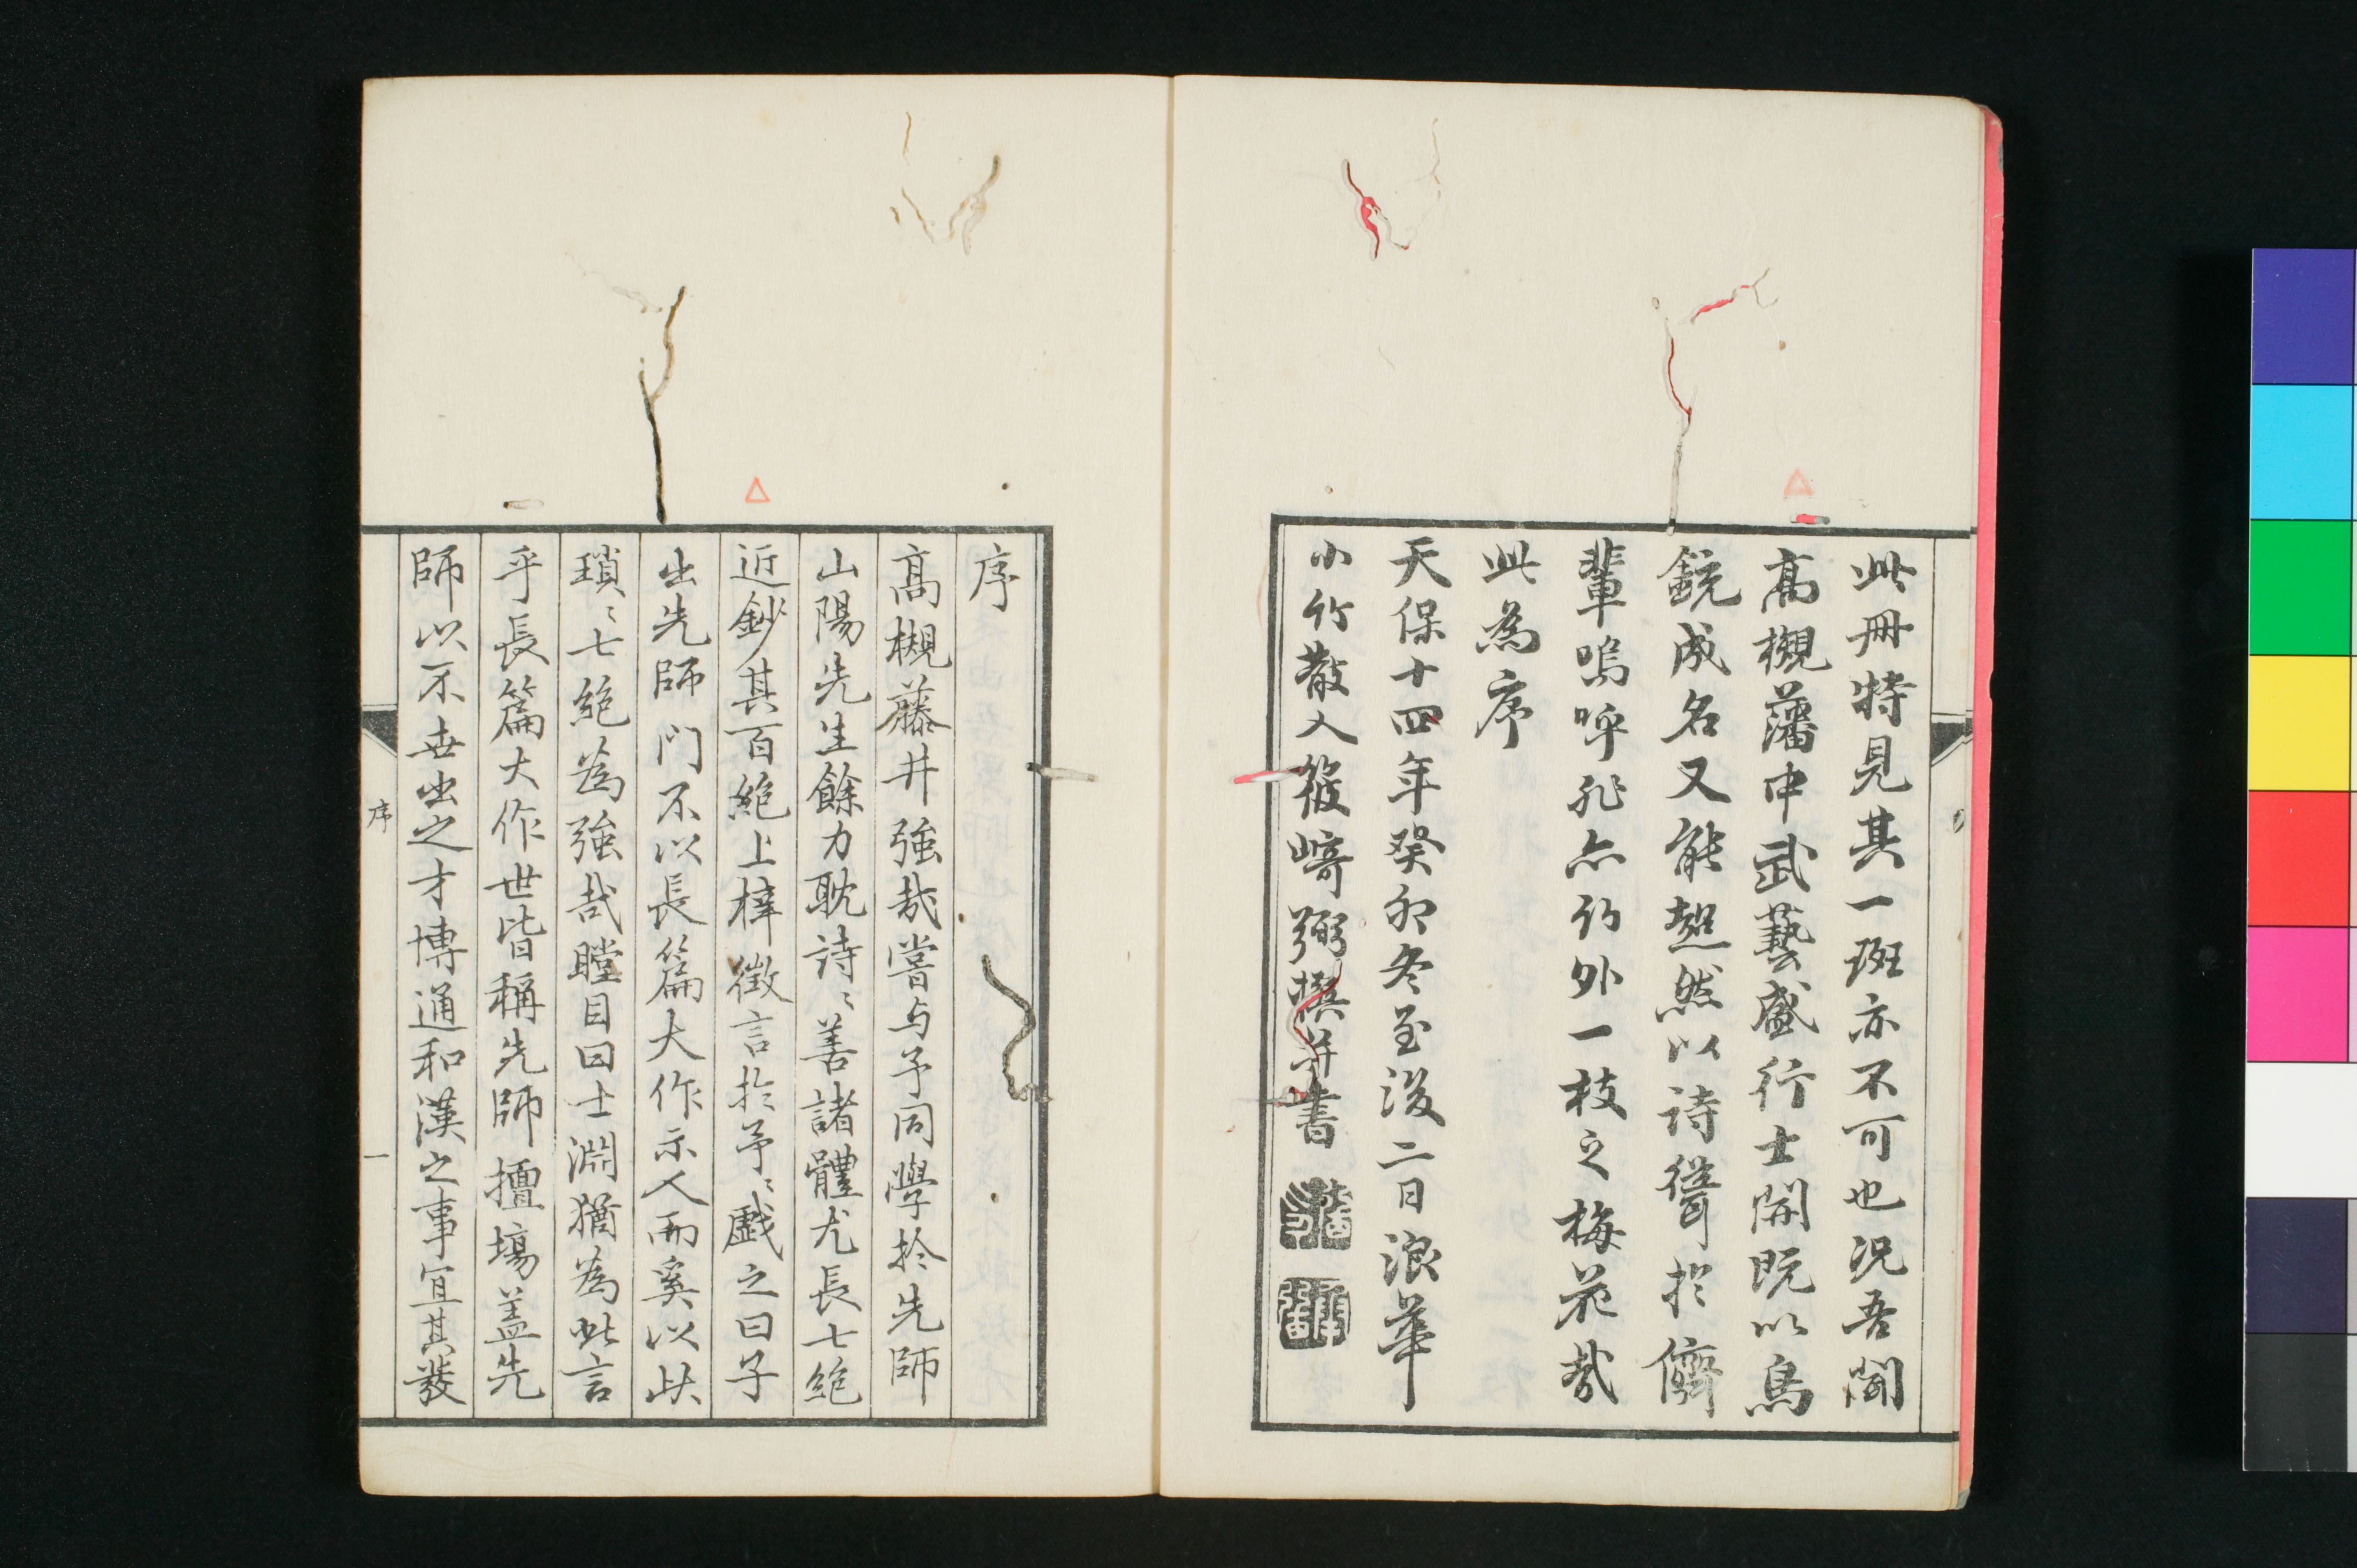 此冊特見其一斑亦不可也況吾聞
高槻藩中武藝盛行士開既以鳥
銃成名又能超然以詩聳於儕
輩嗚呼非亦竹外一枝之梅花哉
此為序
天保十四年癸卯冬至後二日浪華
小竹散人筱崎弼撰并書
序
高槻藤井強哉嘗与予同學於先師
山陽先生餘力耽詩〻善諸體尤長七絶
近鈔其百絶上梓徴言於予〻戯之曰子
出先師門不以長篇大作示人而奚以此
瑣〻七絶為強哉瞠目曰士淵猶為此言
乎長篇大作世皆稱先師擅塲蓋先
師以不世出之才博通和漢之事宜其發
序
一